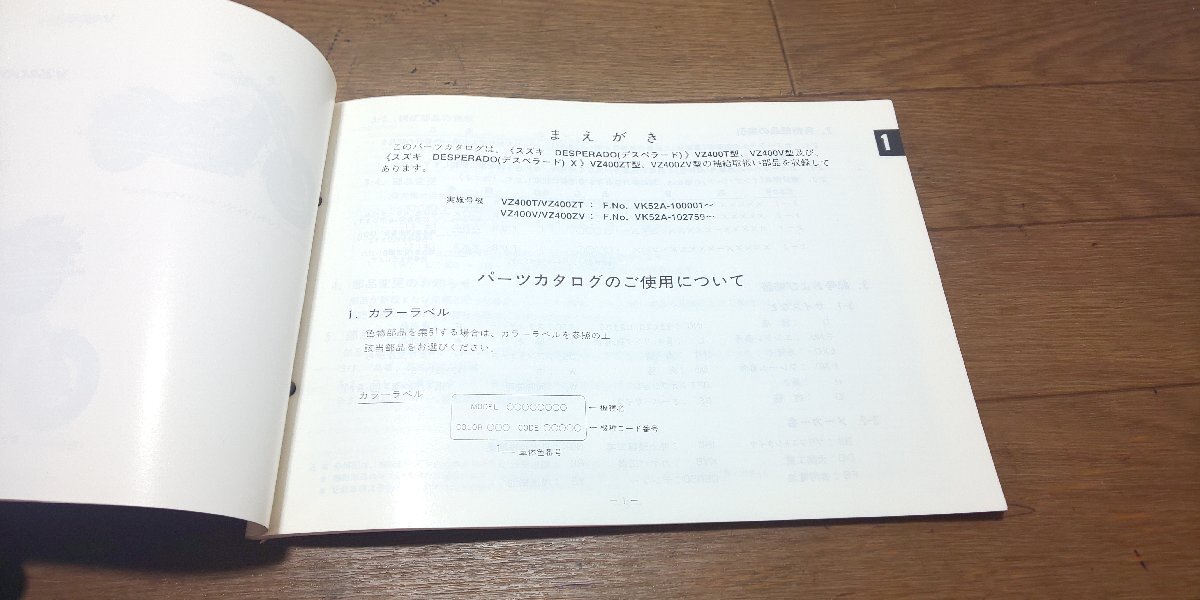 1
まえがき
このパーツカタログは、《スズキ DESPERADO(デスペラード)》VZ400T型、VZ400V型及び、
《スズキ DESPERADO(デスペラード) X》VZ400ZT型、VZ400ZV型の補給取扱い部品を収録して
あります。
実施号機 VZ400T/VZ400ZT： F.No. VK52A-100001～
VZ400V/VZ400ZV： F.No. VK52A-102759～
パーツカタログのご使用について
1. カラーラベル
色物部品を索引する場合は、カラーラベルを参照の上
該当部品をお選びください。
カラーラベル
MODEL ○○○○○○○○ ←機種名
COLOR ○○○ CODE ○○○○○ ←機種コード番号
車体色番号
－1－